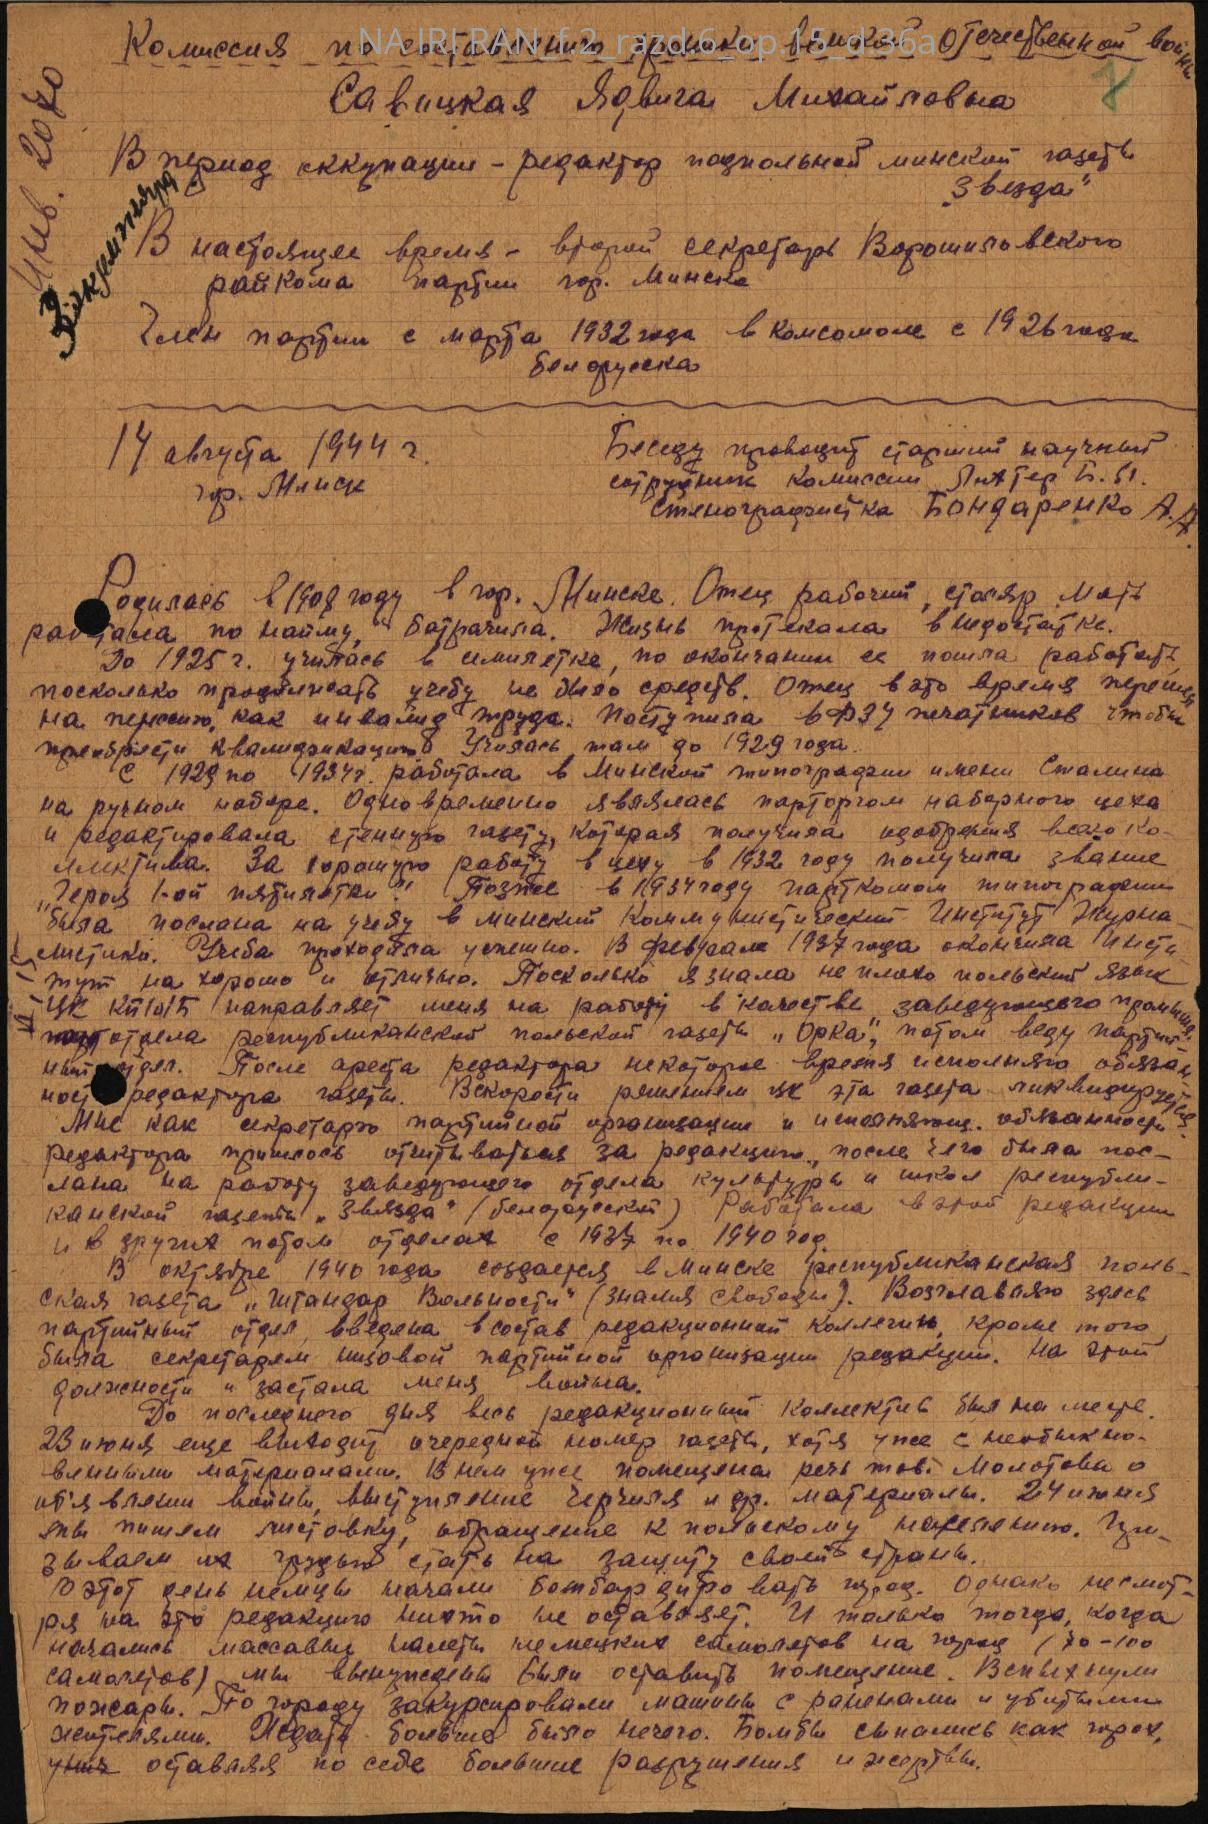 NA IRI RAN_f.2_razd.6_op.15_d.36a
Комиссия по составлению хроники великой Отечественной войны
7
Савицкая Ядвига Михайловна
Инв. 2070
3 экземпляра
В период оккупации – редактор подпольной минской газеты
„Звезда"
В настоящее время – второй секретарь Ворошиловского
райкома партии гор. Минска
Член партии с марта 1932 года в комсомоле с 1926 года
белорусска
14 августа 1944 г.
гор. Минск
Беседу проводит старший научный
сотрудник комиссии
Стенографистка Бондаренко А.А.
Родилась в 1908 году в гор. Минске. Отец рабочий, столяр. Мать
работала по найму, батрачила. Жизнь протекала в недостатке.
До 1925 г. училась в семилетке, по окончании ее пошла работать,
посколько продолжать учебу не было средств. Отец в это время перешел
на пенсию, как инвалид труда. Поступила в ФЗУ печатников чтобы
преобрести квалификацию. Училась там до 1929 года.
С 1929 по 1934 г. работала в Минской типографии имени Сталина
на ручном наборе. Одновременно являлась парторгом наборного цеха
и редактировала стенную газету, которая получила одобрения всего ко-
ллектива. За хорошую работу в цеху в 1932 году получила звание
„Героя 1-ой пятилетки". Позже в 1934 году парткомом типографии
была послана на учебу в минский Коммунистический Институт Журна-
листики. Учеба проходила успешно. В феврале 1937 года окончила Инсти-
тут на хорошо и отлично. Посколько я знала не плохо польский язык
ЦК КП/б/Б направляет меня на работу в качестве заведующего
отдела республиканской польской газеты „Орка", потом веду
отдел. После ареста редактора некоторое время исполняю обязан-
ности редактора газеты. Вскорости решением ЦК эта газета ликвидируется.
Мне как секретарю партийной организации и исполняющ. обязанности
редактора пришлось отчитываться за редакцию, после чего была пос-
лана на работу заведующего отдела культуры и школ республи-
канской газеты „Звязда" (белорусской) Работала в этой редакции
и в других потом отделах с 1937 по 1940 год.
В октябре 1940 года создается в Минске республиканская поль-
ская газета „Штандар Вольности" (Знамя свободы). Возглавляю здесь
партийный отдел, введена в состав редакционной коллегии, кроме того,
была секретарем низовой партийной организации редакции. На этой
должности и застала меня война.
До последнего дня весь редакционный коллектив был на месте.
23 июня еще выходит очередной номер газеты, хотя уже с необыкно-
венными материалами. В нем уже помещена речь тов. Молотова о
об'явлении войны, выступление Черчиля и др. материалы. 24 июня
мы пишем листовку, обращение к польскому населению. При-
зываем их грудью стать на защиту своей страны.
В этот день немцы начали бомбардировать город. Однако несмот-
ря на это редакцию никто не оставляет. И только тогда, когда
начались массавыи налеты немецких самолетов на город (70-100
самолетов) мы вынуждены были оставить помещение. Вспыхнули
пожары. По городу закурсировали машины с ранеными и убитыми
жителями. Ждать больше было нечего. Бомбы сыпались как горох,
оставляя по себе большие разрушения и жертвы.